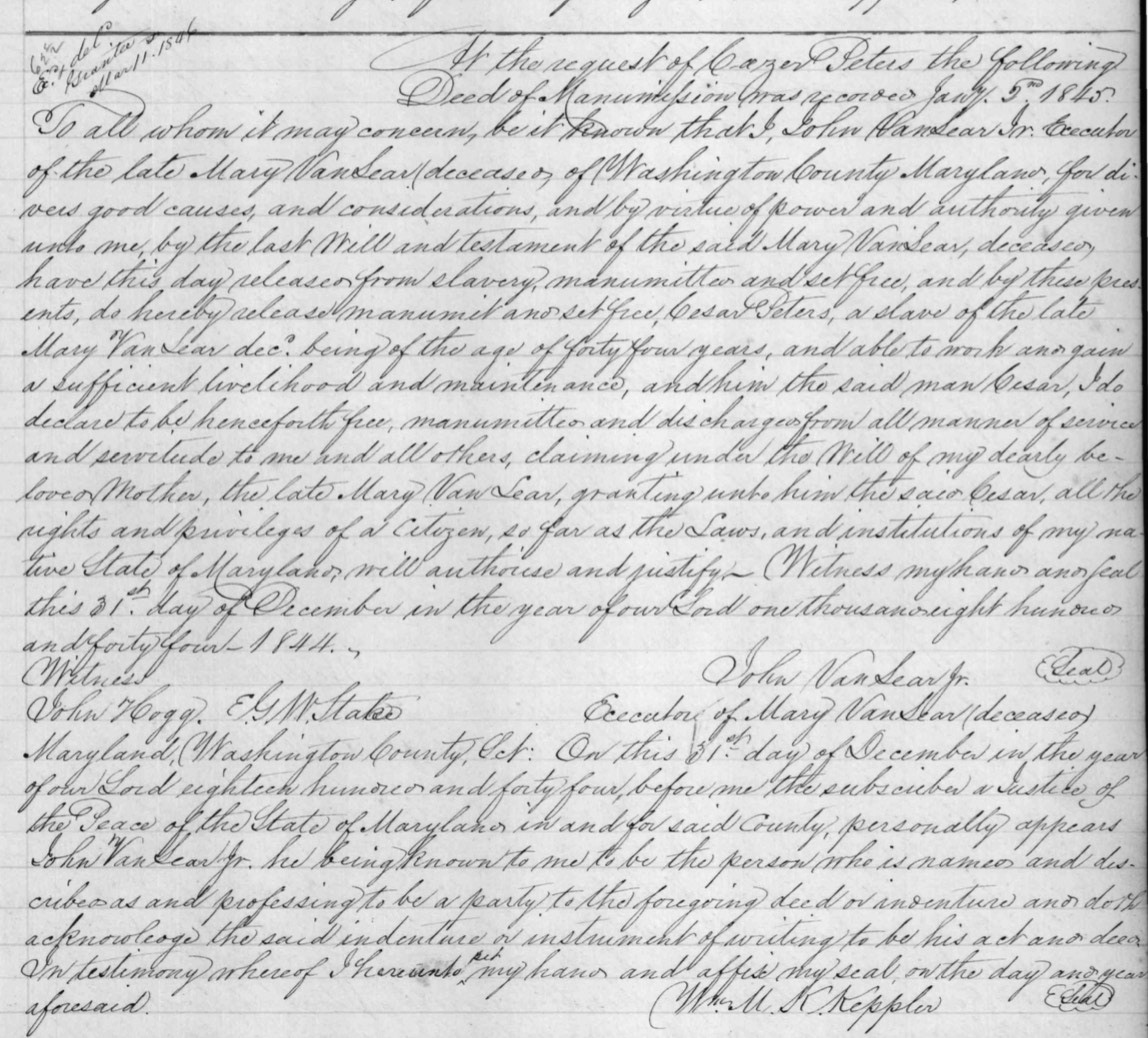 Ex. & del.d
Grantee
Mar. 11. 1846
At the request of Cezer Peters the following
Deed of Manumission was recorded Jany. 2nd 1845.
To all whom it may concern, be it known that I, John VanLear Jr. Executor
of the late Mary VanLear (deceased, of Washington County Maryland, for di-
vers good causes, and considerations, and by virtue of power and authority given
unto me, by the last Will and testament of the said Mary VanLear, deceased,
have this day released from slavery, manumitted and set free, and by these pres-
ents, do hereby release manumit and set free, Cesar Peters, a slave of the late
Mary VanLear decd. being of the age of forty four years, and able to work and gain
a sufficient livelihood and maintenance, and him the said man Cesar, I do
declare to be henceforth free, manumitted and discharged from all manner of service
and servitude to me and all others, claiming under the Will of my dearly be-
loved Mother, the late Mary Van Lear, granting unto him the said Cesar, all the
rights and privileges of a Citizen, so far as the Laws, and institutions of my na-
tive State of Maryland, will authorise and justify,— Witness my hand and Seal
this 31st. day of December in the year of our Lord one thousand eight hundred
and forty four— 1844.
Witness
John VanLear Jr. (Seal)
John Hogg. E G W Stake
Executor of Mary VanLear (deceased)
Maryland, Washington County, Sct: On this 31st day of December in the year
of our Lord eighteen hundred and forty four, before me the subscriber a Justice of
the Peace of the State of Maryland in and for said County, personally appears
John VanLear Jr. he being known to me to be the person who is named and des-
cribed as and professing to be a party to the foregoing deed or indenture and doth
acknowledge the said indenture or instrument of writing to be his act and deed
In testimony whereof I hereunto set my hand and affix my seal on the day and year
aforesaid. Wm. M. K. Keppler (Seal)